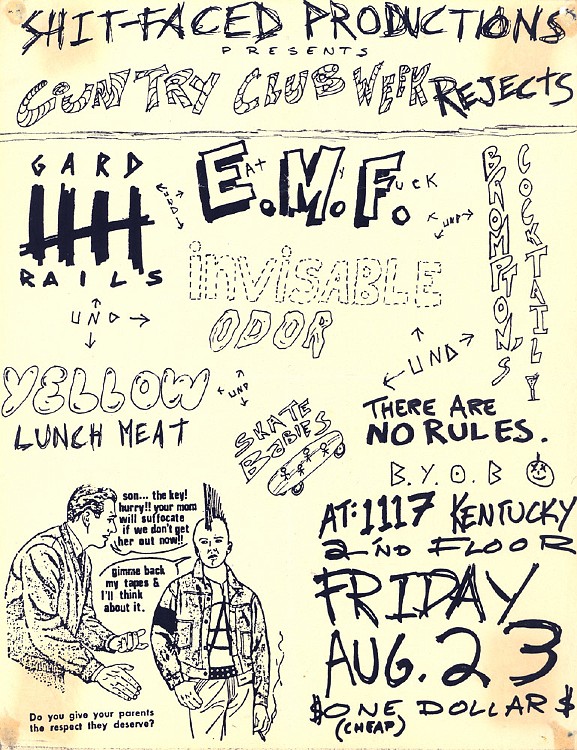 SHIT-FACED PRODUCTIONS
PRESENTS
COUNTRY CLUB WEEK REJECTS
GARD
RAILS
UND
EAT
MY
FUCK
E.M.F.
UND
BROMPTON'S
COCKTAILY
INVISABLE
ODOR
UND
UND
YELLOW
LUNCH MEAT
UND
SKATE
BABIES
THERE ARE
NO RULES.
B.Y.O.B
AT: 1117 KENTUCKY
2'ND FLOOR
FRIDAY
AUG. 23
$ONE DOLLAR$
(CHEAP)
son... the key!
hurry!! your mom
will suffocate
if we don't get
her out now!!
gimme back
my tapes &
I'll think
about it.
A
Do you give your parents
the respect they deserve?